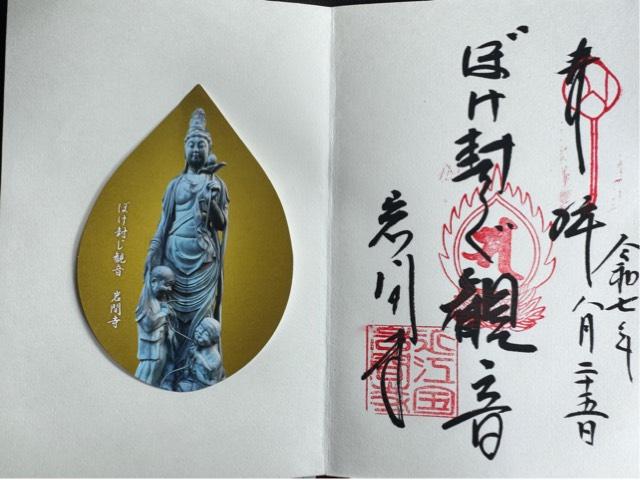 奉拝
令和七年八月二十五日
ぼけ封じ観音
岩間寺
ぼけ封じ観音 岩間寺